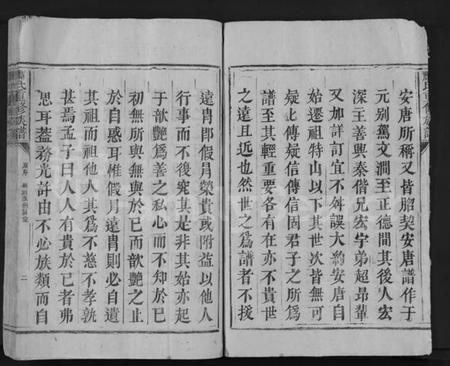 安唐所稱又皆昭契安唐譜作于
元别駡文澗至正德間其後人宏
深王善與秦偕兄宏宇弟超昻軰
又加詳訂宜不舛誤大約安唐自
始遷祖特山以下其世次皆無可
疑也傳疑信傳信固君子之所爲
譜至其輕重要各有在亦不貴世
之遠且近也然世之爲譜者不援
遠胄即假月榮貴或附益以他人
行事而不後究其是非其始亦起
于歆艷爲善之私心而不知於已
初無所與無與於已而歆艷之止
於自惑耳惟假月遠胄則必自遺
其祖而祖他人其爲不慈不孝孰
甚焉孟子曰人人有貴於已者弗
思耳蓋務光許由不必族類而自
氏重修族譜
二